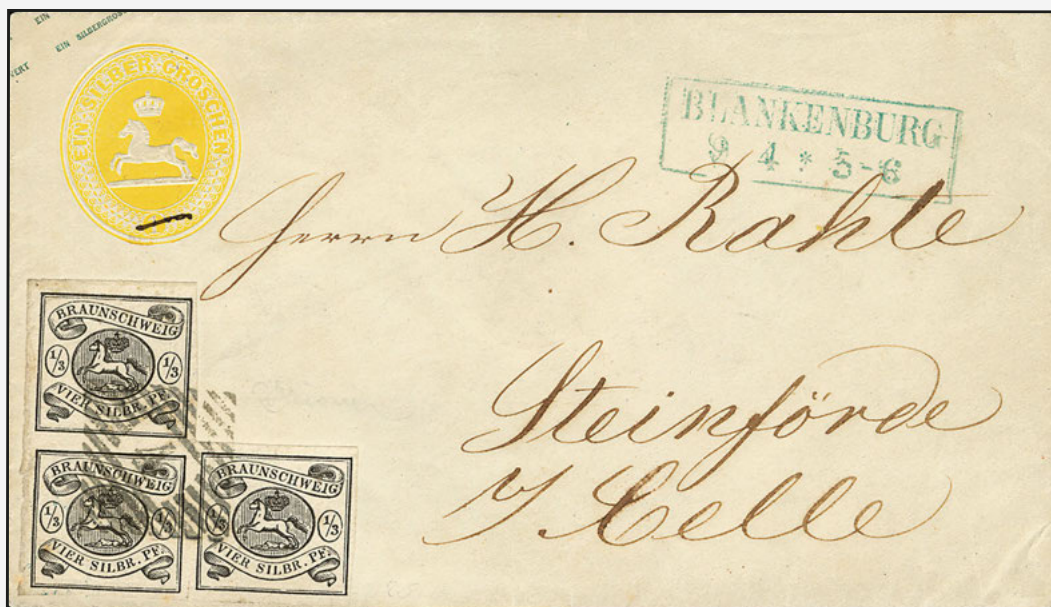 EIN
EIN SILBERGROS
VERT
EIN · SILBER · GROSCHEN
BLANKENBURG
9 4 * 5-6
Herrn H. Rahte
Steinförde
Celle
BRAUNSCHWEIG
1/3 1/3
VIER SILBR. PF.
BRAUNSCHWEIG
1/3 1/3
VIER SILBR. PF.
BRAUNSCHWEIG
1/3 1/3
VIER SILBR. PF.